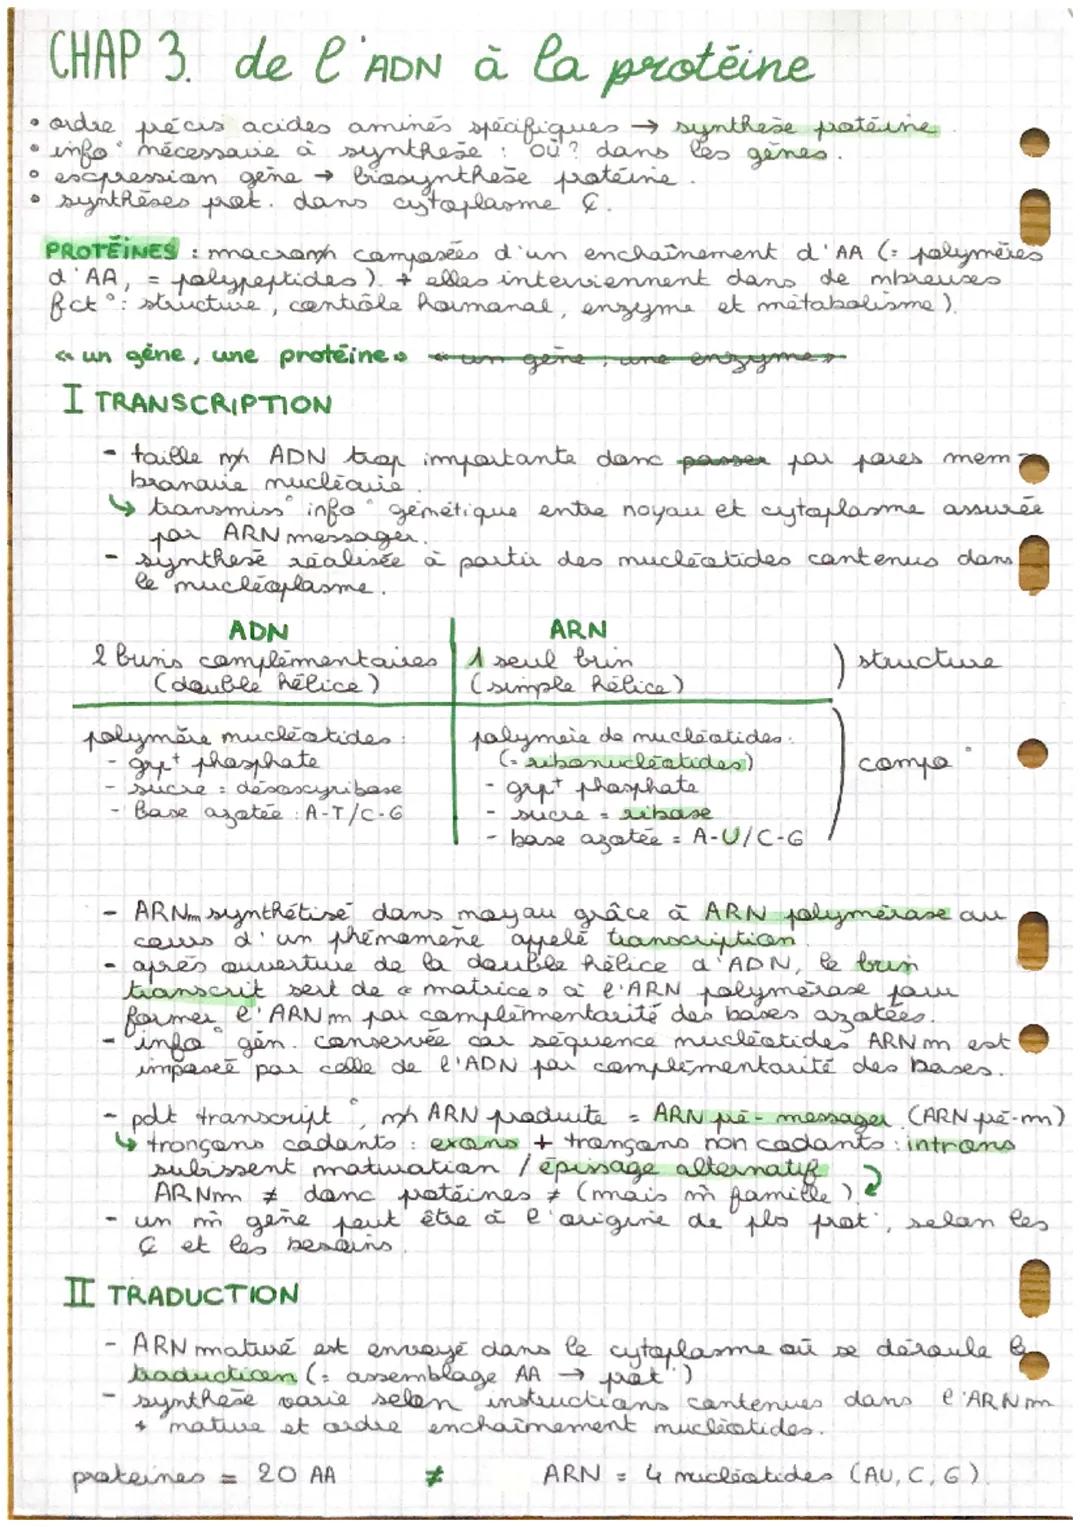 CHAP 3. de l'ADN à la protéine
• ordre précis acides aminés spécifiques → synthèse protéine.
• info° nécessaire à synthèse : où ? dans les gènes.
• expression gène → biosynthèse protéine.
• synthèses prot. dans cytoplasme ₵.
PROTÉINES : macromφ composées d'un enchaînement d'AA (= polymères
d'AA, = polypeptides). + elles interviennent dans de nbreuses
fct° : structure, contrôle hormonal, enzyme et métabolisme).
« un gène, une protéine » « un gène, une enzyme »
I TRANSCRIPTION
- taille mφ ADN trop importante donc passer par pores mem-
branaire nucléaire.
↳ transmiss° info° génétique entre noyau et cytoplasme assurée
par ARN messager.
- synthèse réalisée à partir des nucléotides contenus dans
le nucléoplasme.
ADN ARN
2 brins complémentaires 1 seul brin ) structure
(double hélice) (simple hélice)
polymère nucléotides : polymère de nucléotides :
- grpt phosphate (= ribonucléotides) compo°
- sucre = désoxyribose - grpt phosphate
- Base azotée : A-T/C-G - sucre = ribose
- base azotée = A-U/C-G
- ARNm synthétisé dans noyau grâce à ARN polymérase au
cours d'un phénomène appelé transcription.
- après ouverture de la double hélice d'ADN, le brin
transcrit sert de « matrice » à l'ARN polymérase pour
former l'ARNm par complémentarité des bases azotées.
- info° gén. conservée car séquence nucléotides ARNm est
imposée par celle de l'ADN par complémentarité des bases.
- pdt transcript°, mφ ARN produite = ARN pré-messager (ARN pré-m)
↳ tronçons codants : exons + tronçons non codants : introns
subissent maturation / épissage alternatif
ARNm ≠ donc protéines ≠ (mais m̂ famille).
- un m̂ gène peut être à l'origine de pls prot°, selon les
₵ et les besoins.
II TRADUCTION
- ARN maturé est envoyé dans le cytoplasme où se déroule la
traduction (= assemblage AA → prot°)
- synthèse varie selon instructions contenues dans l'ARNm
+ nature et ordre enchaînement nucléotides.
protéines = 20 AA ≠ ARN = 4 nucléotides (AU, C, G).